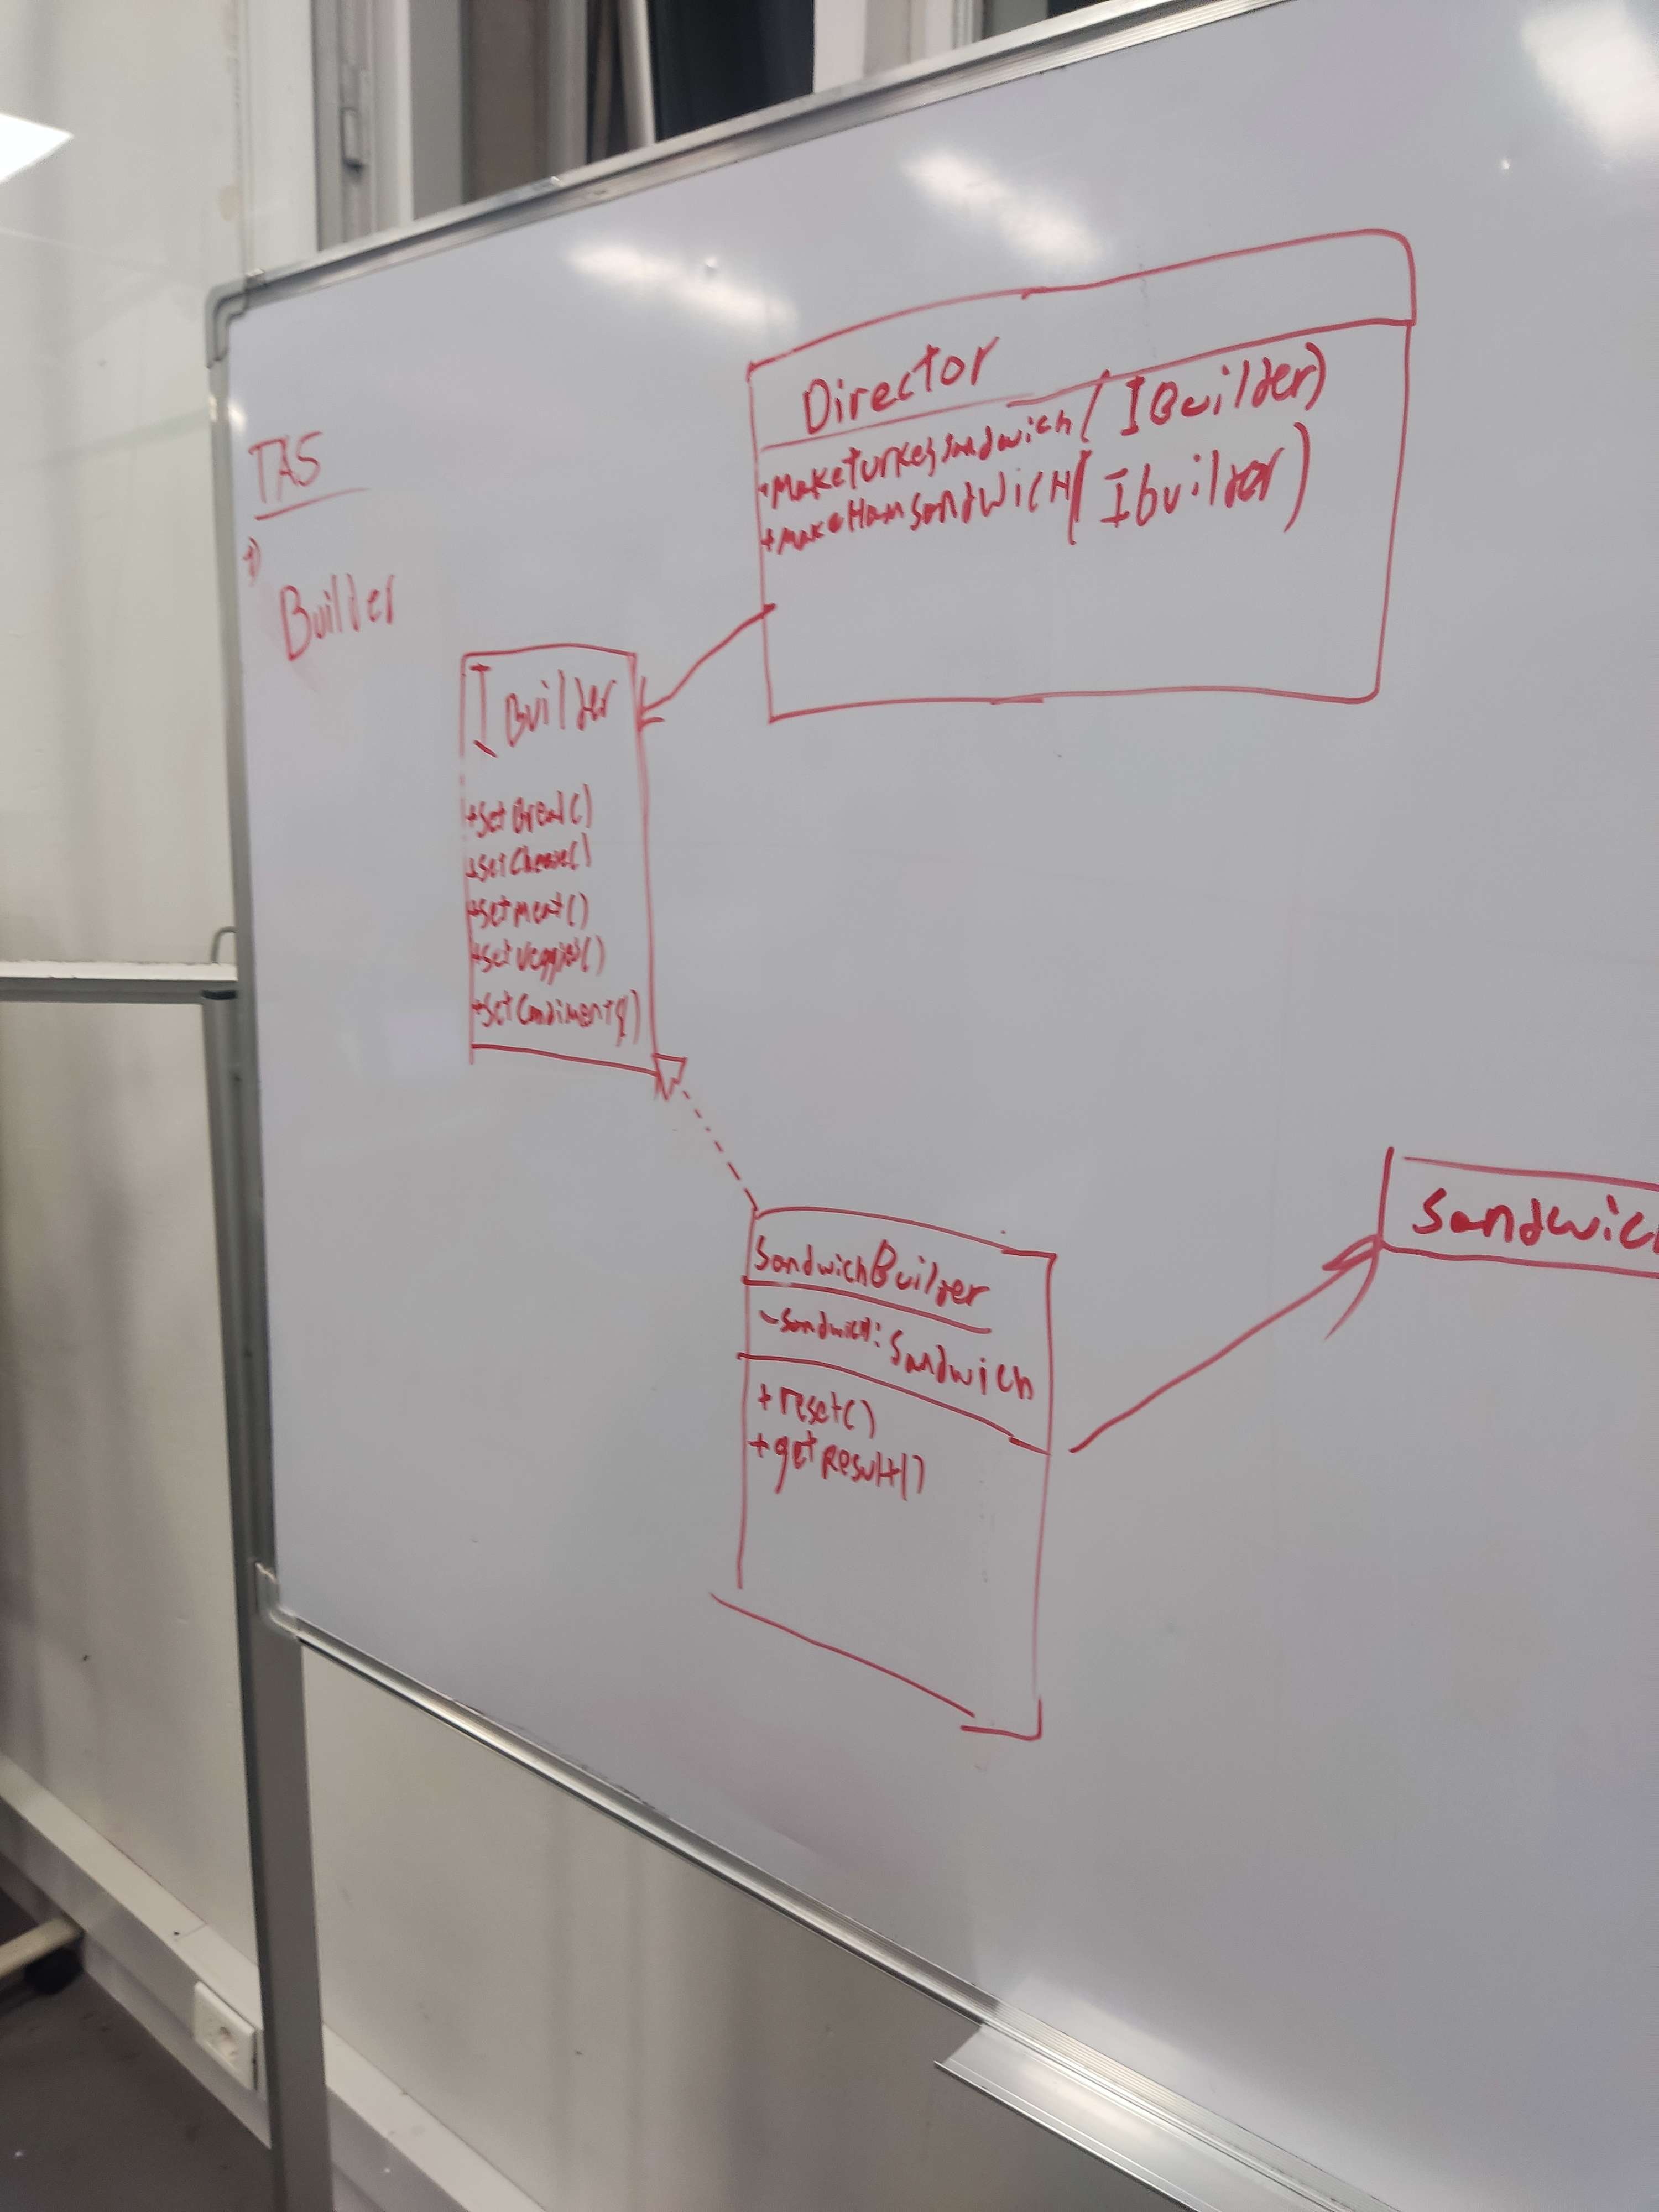 TAS
Builder
Director
+MaketurkeySandwich(IBuilder)
+makeHamSandWicH(Ibuilder)
IBuilder
+SetBread()
+SetCheese()
+Setmeat()
+SetVeggies()
+SetCondiments()
SandwichBuilder
-SandwicH: Sandwich
+reset()
+getResult()
Sandwich